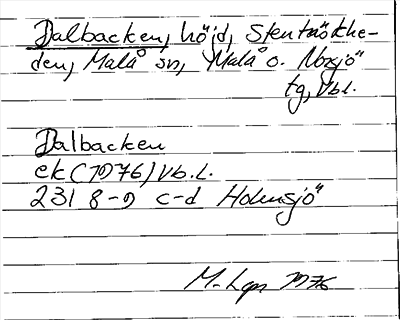 Dalbacken, höjd, Stenträskhe-
den, Malå sn, Malå o. Norsjö
tg, Vbl.
Dalbacken
ek (1976) Vb.l.
231 8-9 c-d Holmsjö
1976